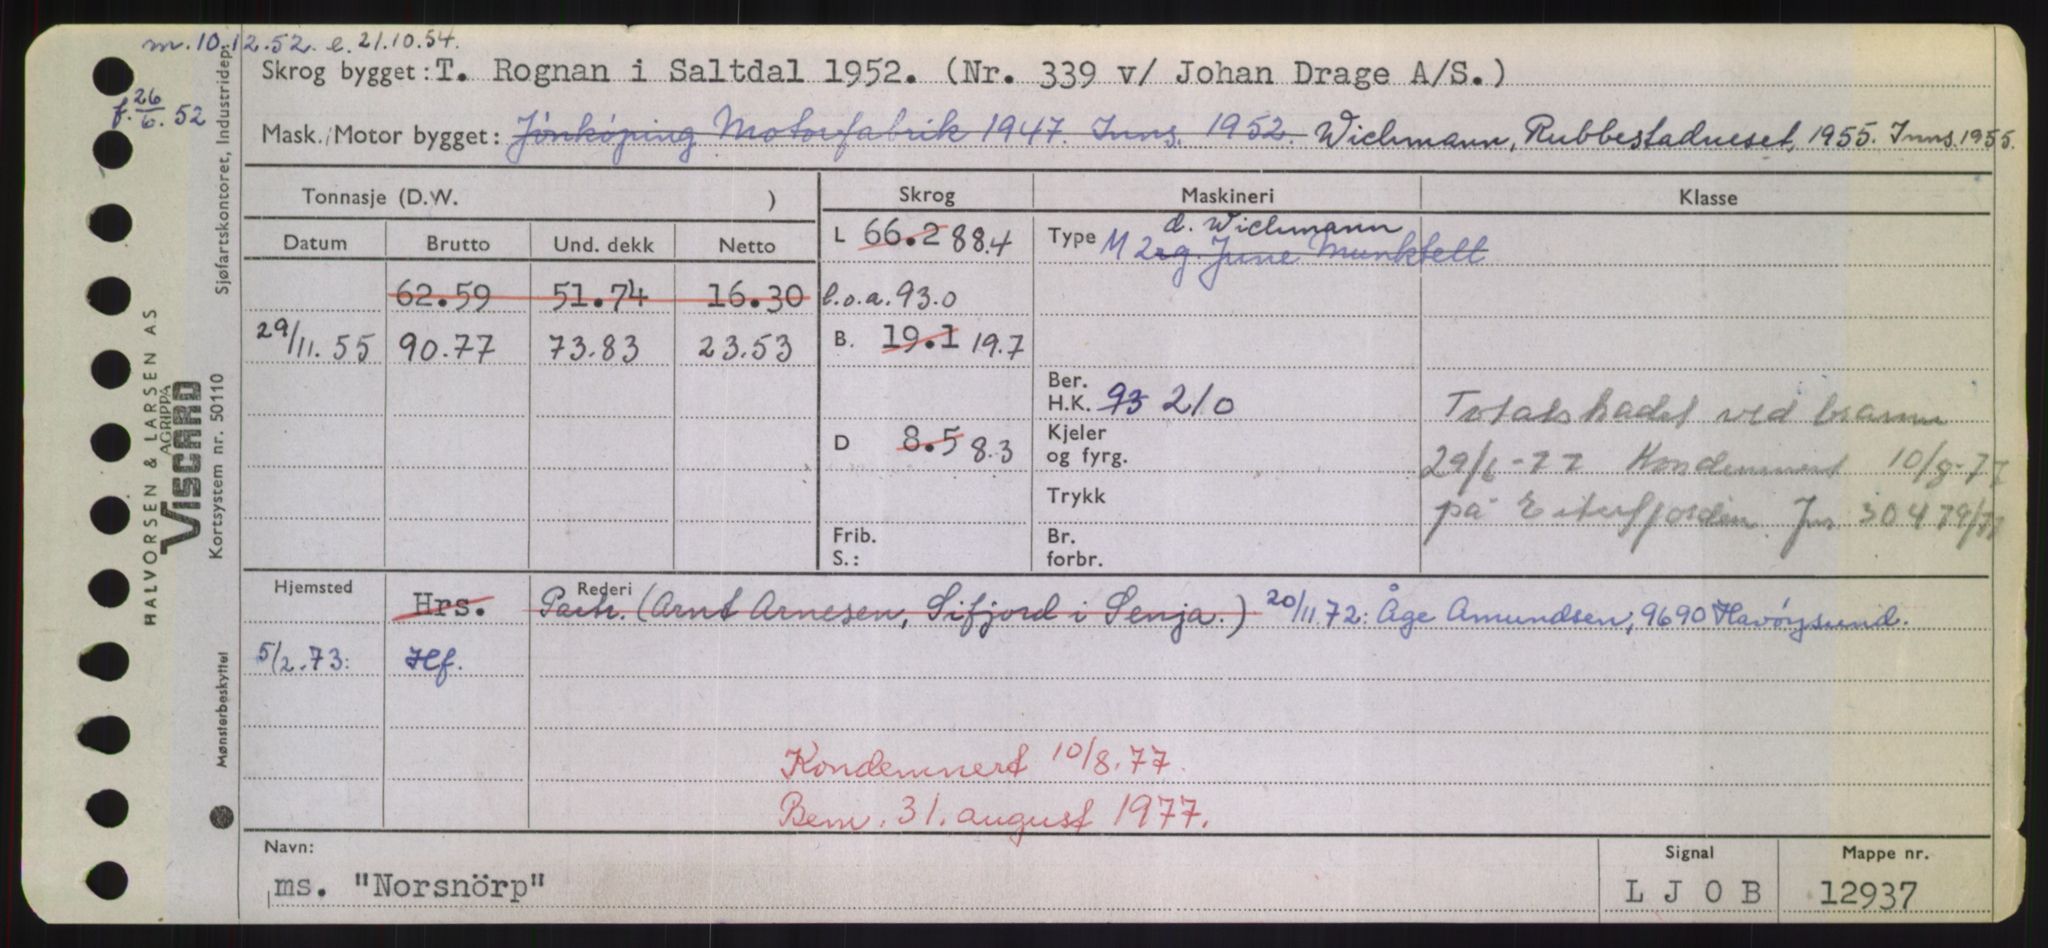 m. 10.12.52. e. 21.10.54.
f. 26/6. 52
Skrog bygget: T. Rognan i Saltdal 1952. (Nr. 339 v/ Johan Drage A/S.)
Mask./Motor bygget: Jönköping Motorfabrik 1947. Inns. 1952. Wichmann, Rubbestadneset, 1955. Inns. 1955.
Tonnasje (D.W. ) Skrog Maskineri Klasse
Datum Brutto Und. dekk Netto
L 66.2 88.4
Type d. Wichmann
M 2rg. June Munktell
62.59 51.74 16.30 l.o.a. 93.0
29/11. 55 90.77 73.83 23.53 B. 19.1 19.7
Ber. H.K. 93 210
D 8.5 8.3
Kjeler og fyrg.
Trykk
Frib. S.:
Br. forbr.
Totalskadet ved brann
29/6-77 Kondemnert 10/8-77
på Eiterfjorden. Jnr. 30479/77
Hjemsted Rederi
Hrs. Partr. (Arnt Arnesen, Sifjord i Senja.) 20/11.72: Åge Amundsen, 9690 Havöysund.
5/2.73: Hf.
Kondemnert 10/8.77.
Bem. 31. august 1977.
Navn: Signal Mappe nr.
ms. "Norsnörp" L J O B 12937
HALVORSEN & LARSEN AS
AGRIPPA
VISCARD
Kortsystem nr. 50110
Sjøfartskontoret, Industridep.
Mønsterbeskyttet